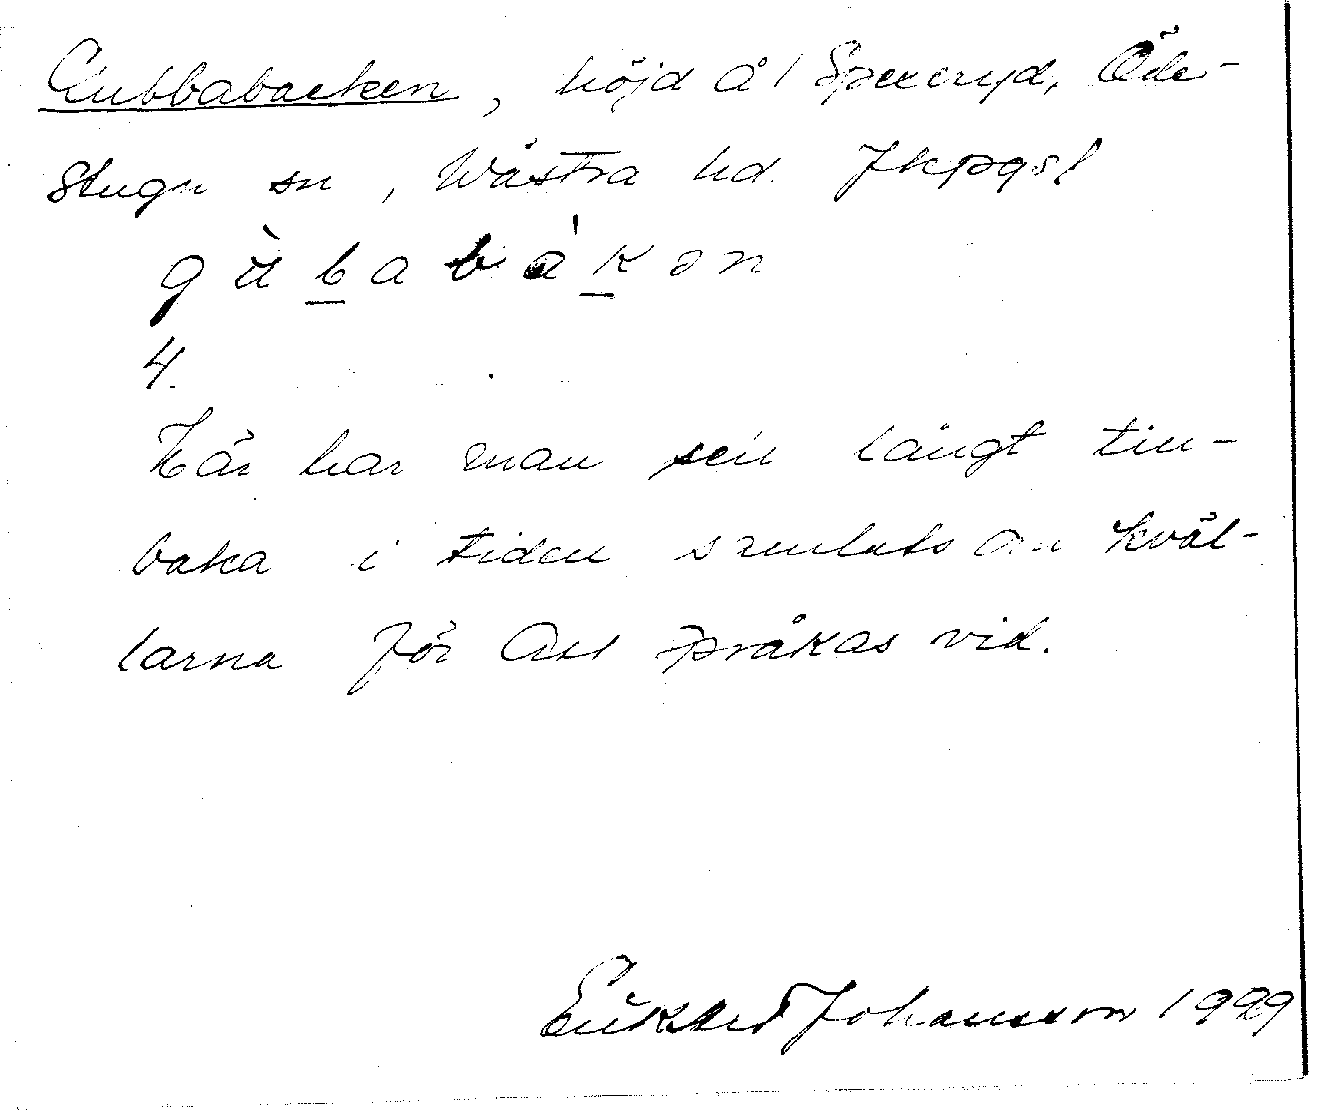 Gubbabacken, höjd å 1 Spexeryd, Öde-
stugu sn, Västra hd. Jkpgs l
gùbabákən
4.
Här har man sen långt till-
baka i tiden samlats om kväl-
larna för att språkas vid.
Johansson 1929